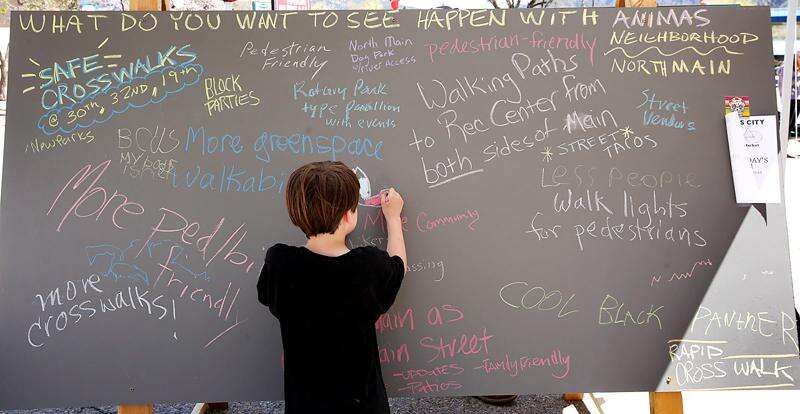 WHAT DO YOU WANT TO SEE HAPPEN WITH ANIMAS
NEIGHBORHOOD
NORTH MAIN
SAFE
CROSSWALKS
@ 30th, 32ND, 19th
Pedestrian
Friendly
North Main
Dog Park
w/River Access
pedestrian-friendly
BLOCK
PARTIES
Rotary Park
type Pavillion
with events
Walking Paths
to Rec Center from
both sides of Main
Street
Vendors
*STREET*
TACOS
New Parks
More greenspace
walkabi
Less People
Walk lights
for pedestrians
More Ped/bi
friendly
More Community
more
crosswalks!
COOL BLACK PANTHER
RAPID
CROSS WALK
ain as
ain Street
-UPDATES -family friendly
-Parties
S CITY
AY'S